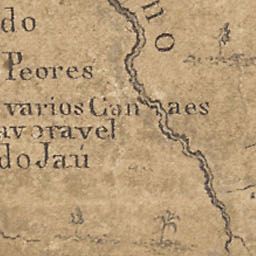 do
no
Peores
varios Gan aes
avoravel
do Jaú